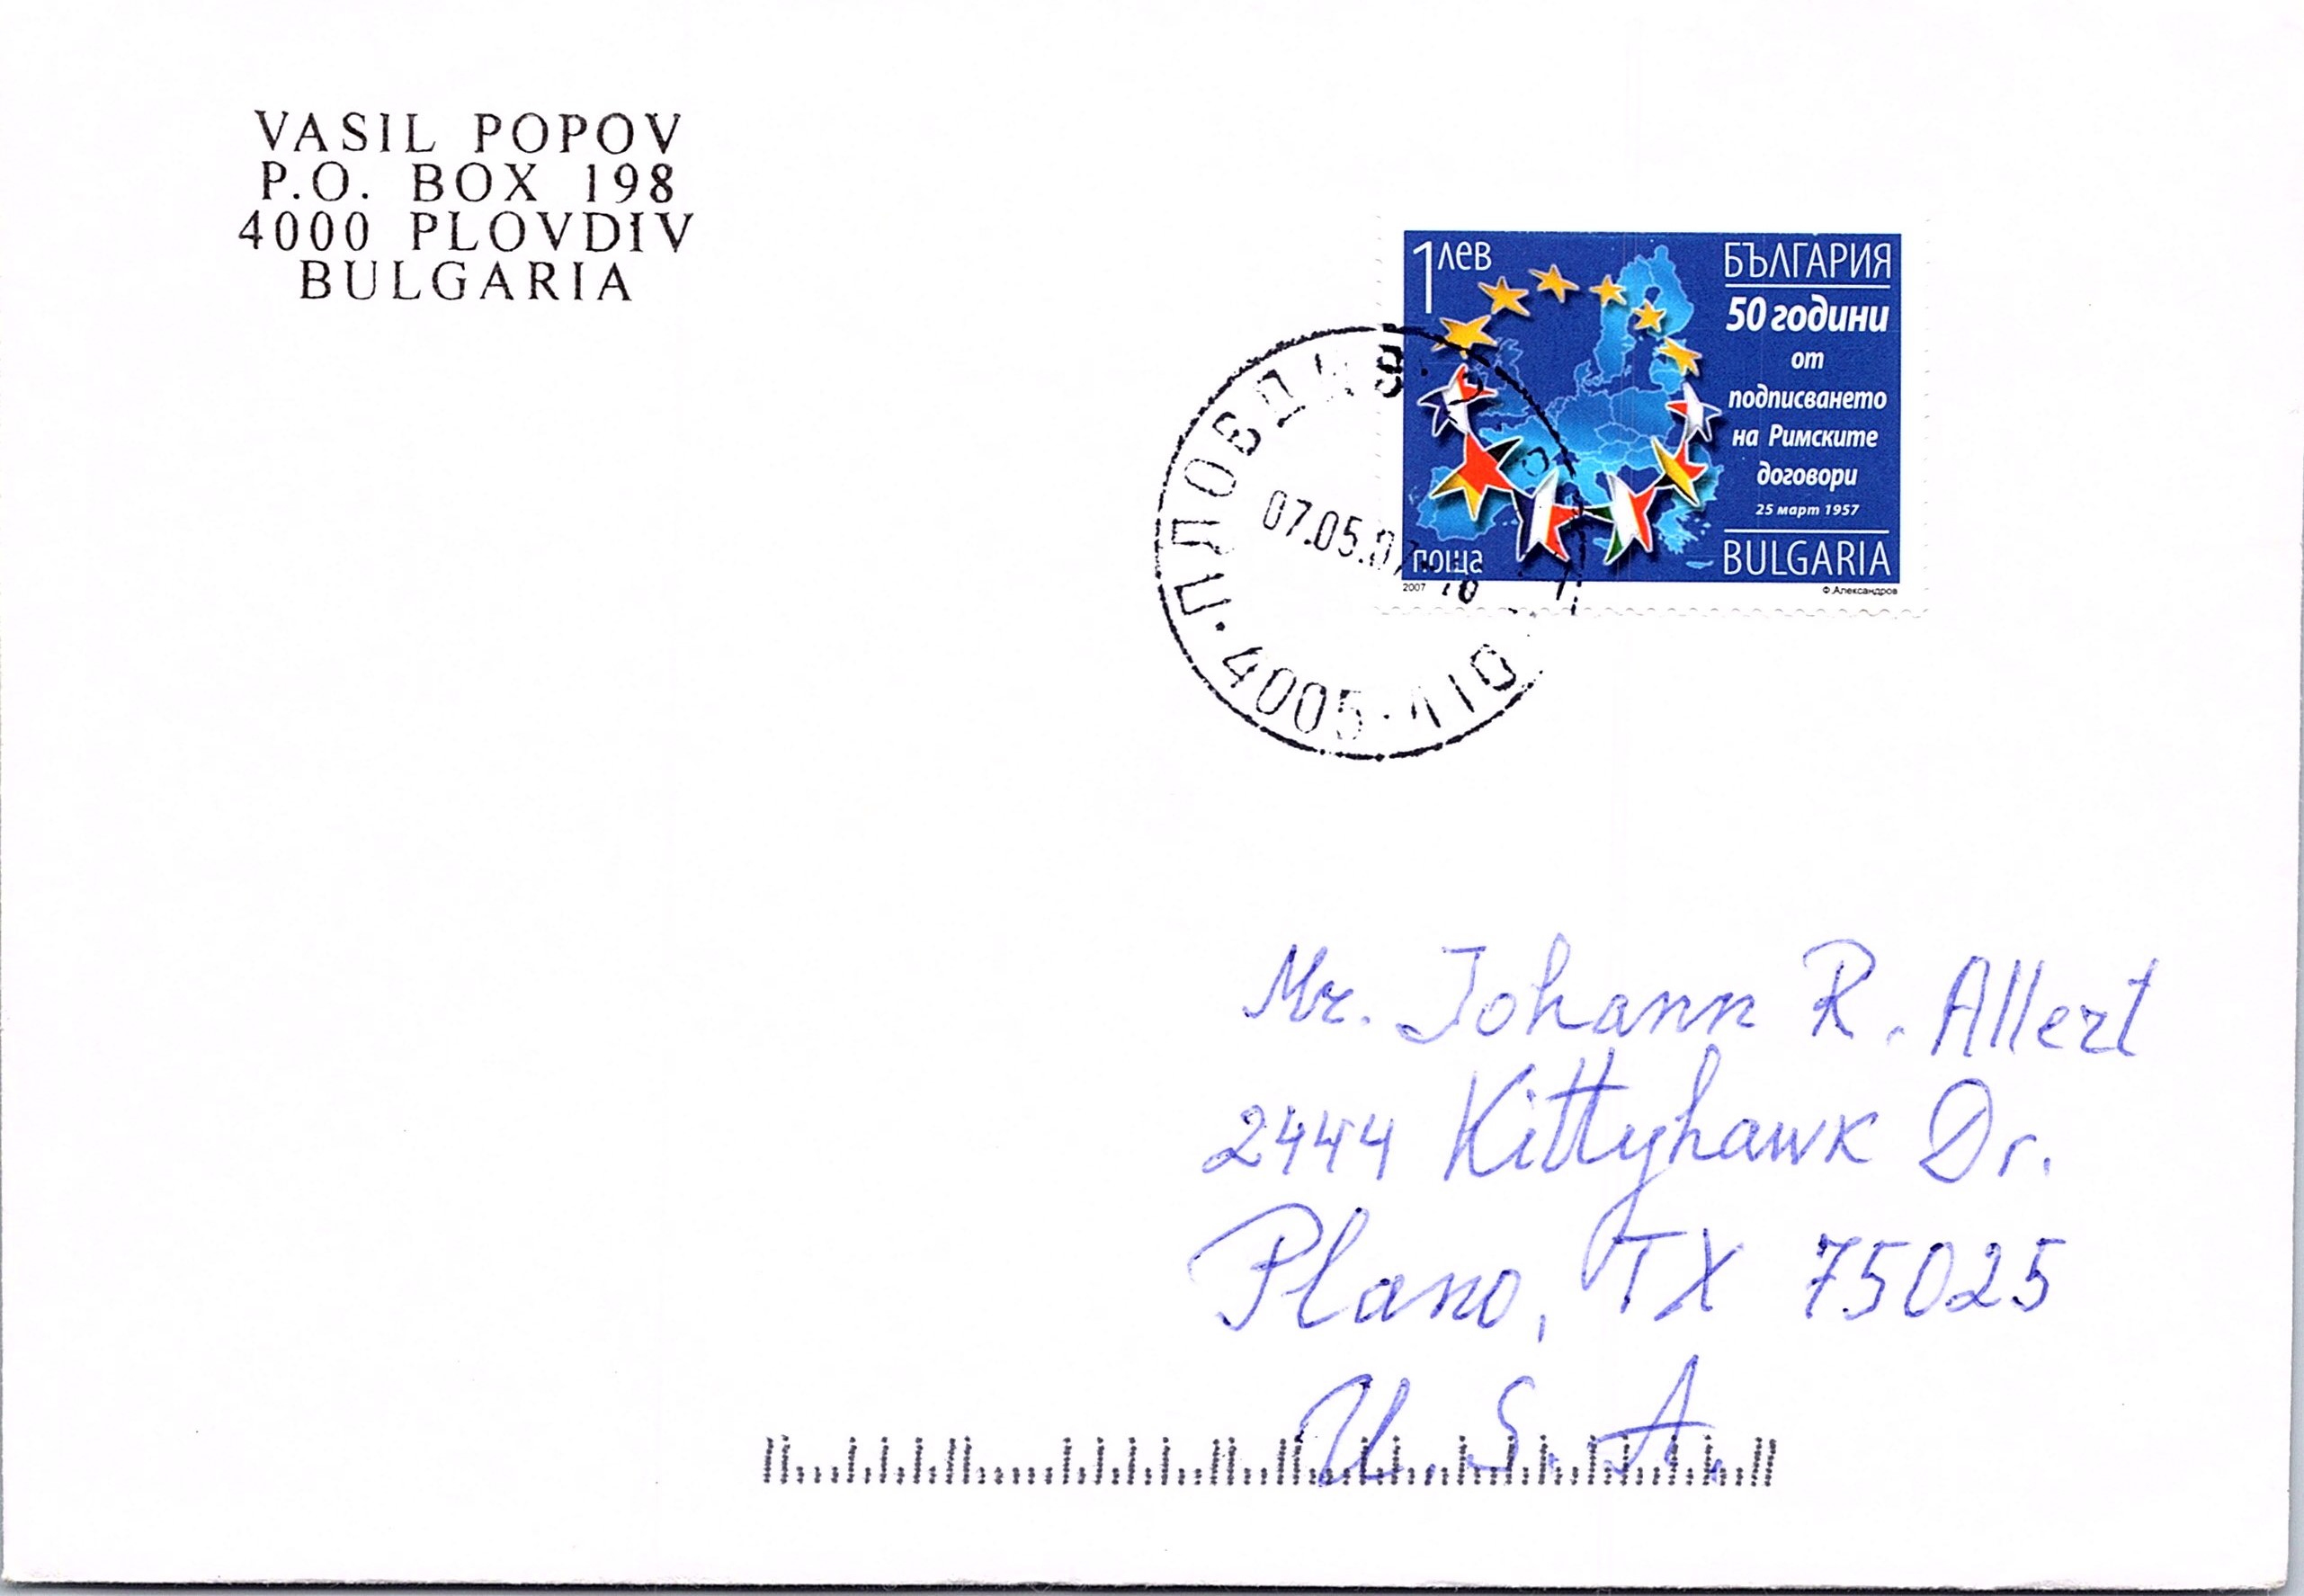 VASIL POPOV
P.O. BOX 198
4000 PLOVDIV
BULGARIA
1 лев
БЪЛГАРИЯ
50 години
от
подписването
на Римските
договори
25 март 1957
BULGARIA
поща
2007
Ф.Александров
ПЛОВДИВ
07.05.07
4005
Mr. Johann R. Allert
2444 Kittyhawk Dr.
Plano, TX 75025
U.S.A.